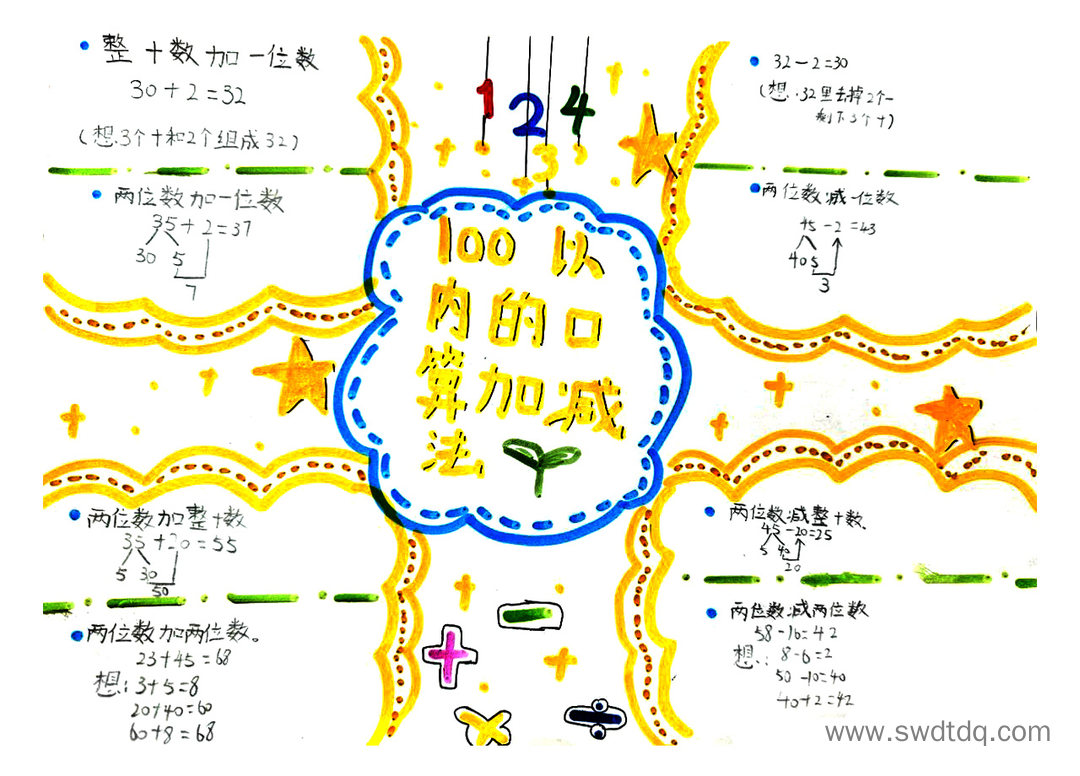 整十数加一位数
30+2=32
(想:3个十和2个组成32)
两位数加一位数
35+2=37
30 5
7
32-2=30
(想:32里去掉2个一
剩下3个十)
两位数减一位数
45-2=43
40 5
3
1 2 3 4
100以
内的口
算加减
法
两位数加整十数
35+20=55
5 30
50
两位数加两位数。
23+45=68
想:3+5=8
20+40=60
60+8=68
两位数减整十数
45-20=25
5 40
20
两位数减两位数
58-16=42
想: 8-6=2
50-10=40
40+2=42
+ - × ÷
www.swdtdq.com